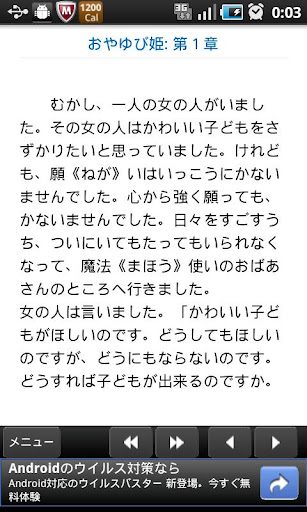 1200
Cal
3G
0:03
おやゆび姫: 第1章
むかし、一人の女の人がいまし
た。その女の人はかわいい子どもをさ
ずかりたいと思っていました。けれど
も、願《ねが》いはいっこうにかない
ませんでした。心から強く願っても、
かないませんでした。日々をすごすう
ち、ついにいてもたってもいられなく
なって、魔法《まほう》使いのおばあ
さんのところへ行きました。
女の人は言いました。「かわいい子ども
がほしいのです。どうしてもほしい
のですが、どうにもならないのです。
どうすれば子どもが出来るのですか。
メニュー
Androidのウイルス対策なら
Android対応のウイルスバスター 新登場。今すぐ無
料体験